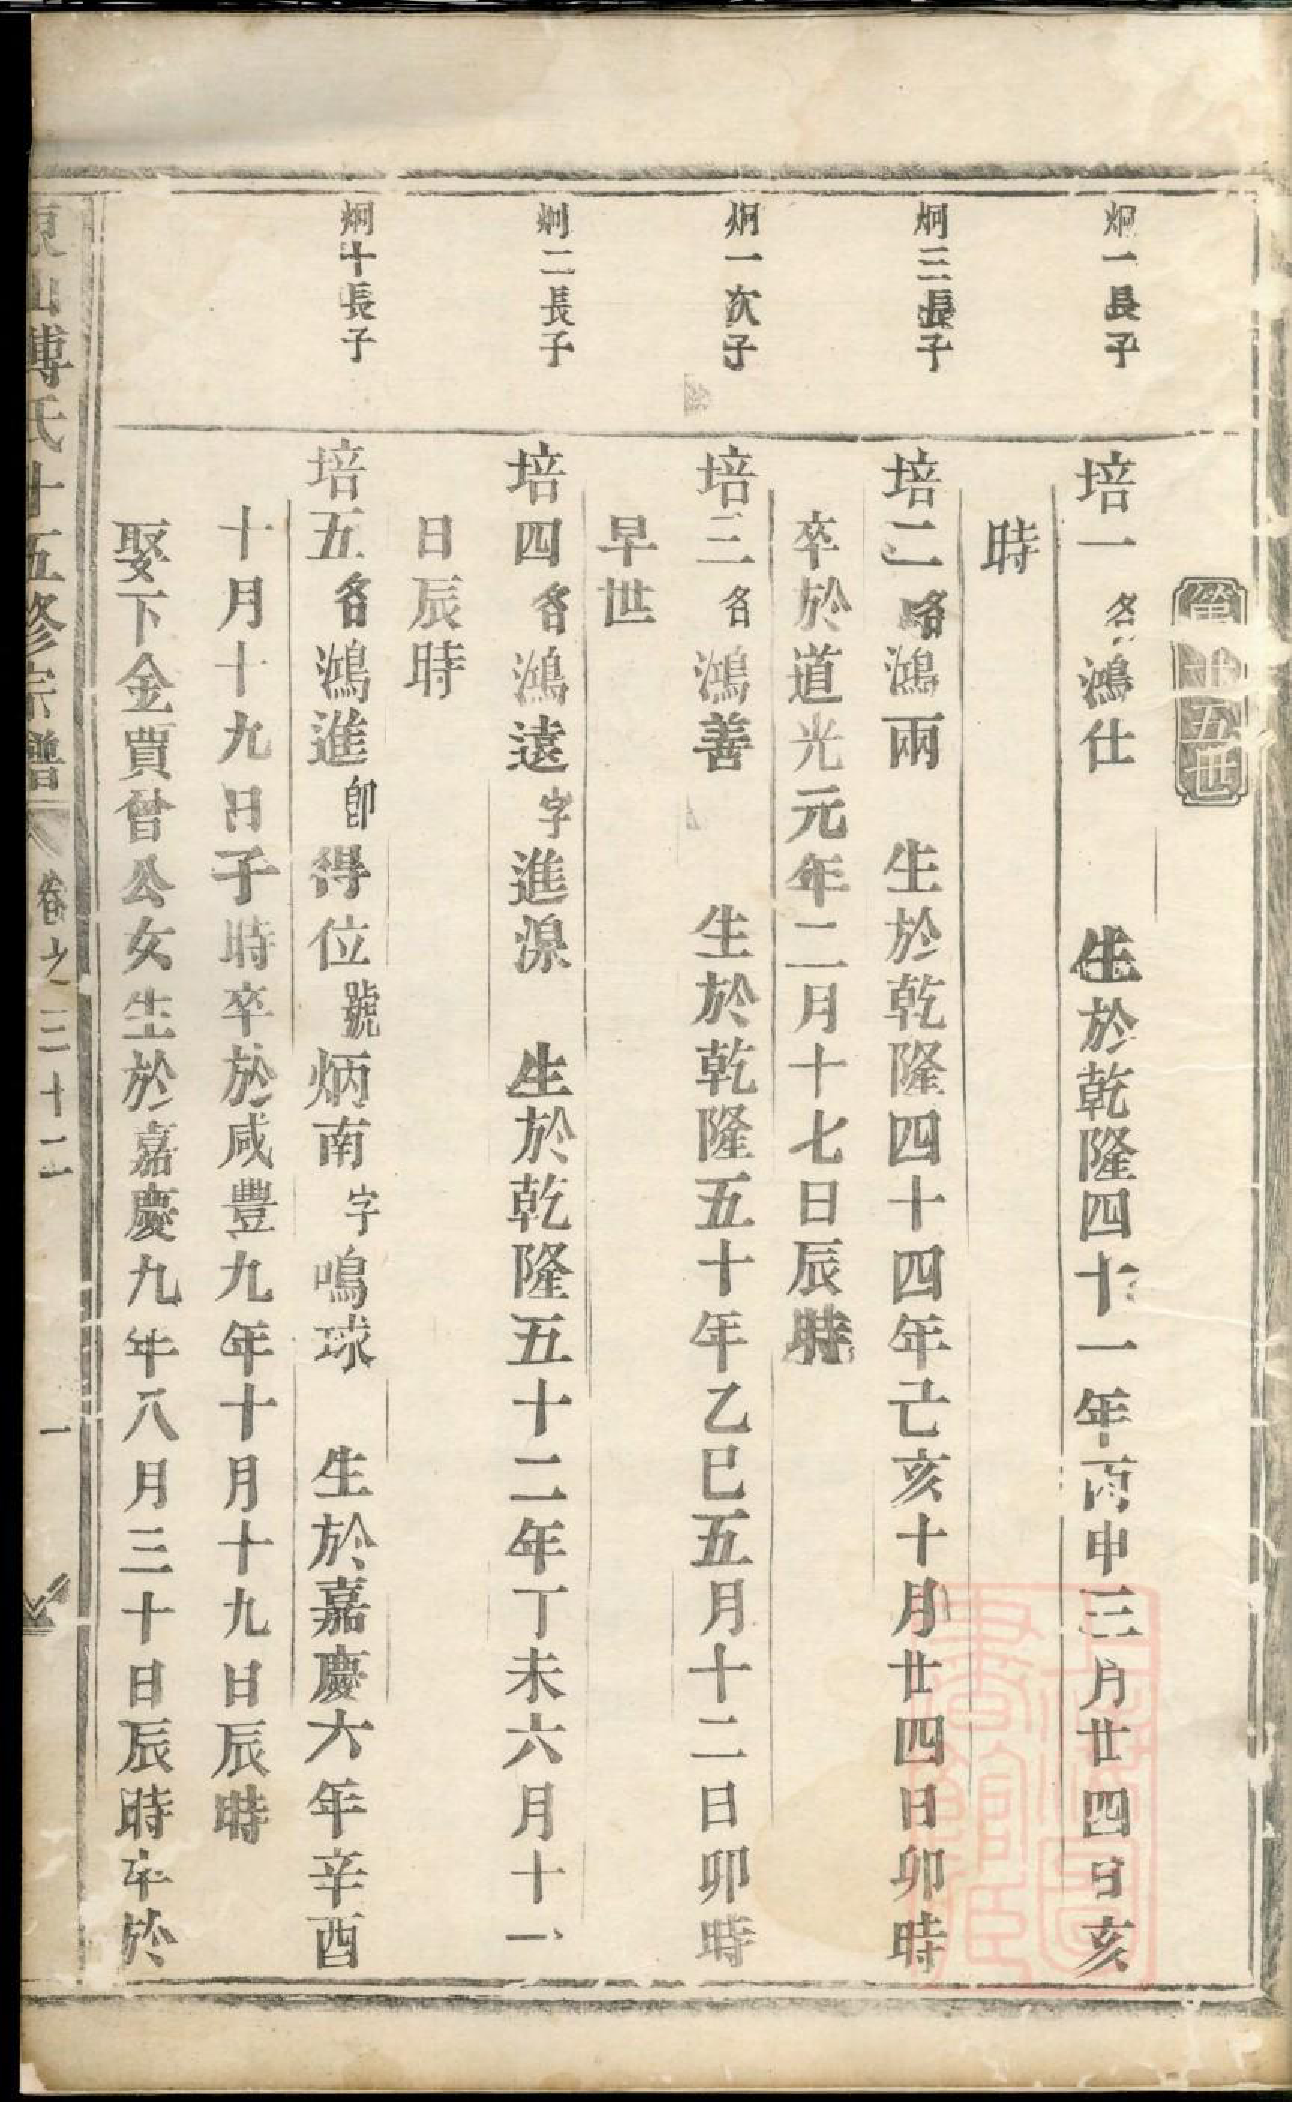 第廿五世
炯一長子
培一名鴻仕 生於乾隆四十一年丙申三月廿四日亥
時
炯三長子
培二名鴻兩 生於乾隆四十四年己亥十月廿四日卯時
卒於道光元年二月十七日辰時
炯一次子
培三名鴻善 生於乾隆五十年乙巳五月十二日卯時
早世
炯二長子
培四名鴻遠字進源 生於乾隆五十二年丁未六月十一
日辰時
炯十長子
培五名鴻進卽得位號炳南字鳴球 生於嘉慶六年辛酉
十月十九日子時卒於咸豐九年十月十九日辰時
娶下金賈曾公女生於嘉慶九年八月三十日辰時卒於
東山傅氏十五修宗譜 卷之三十二 一